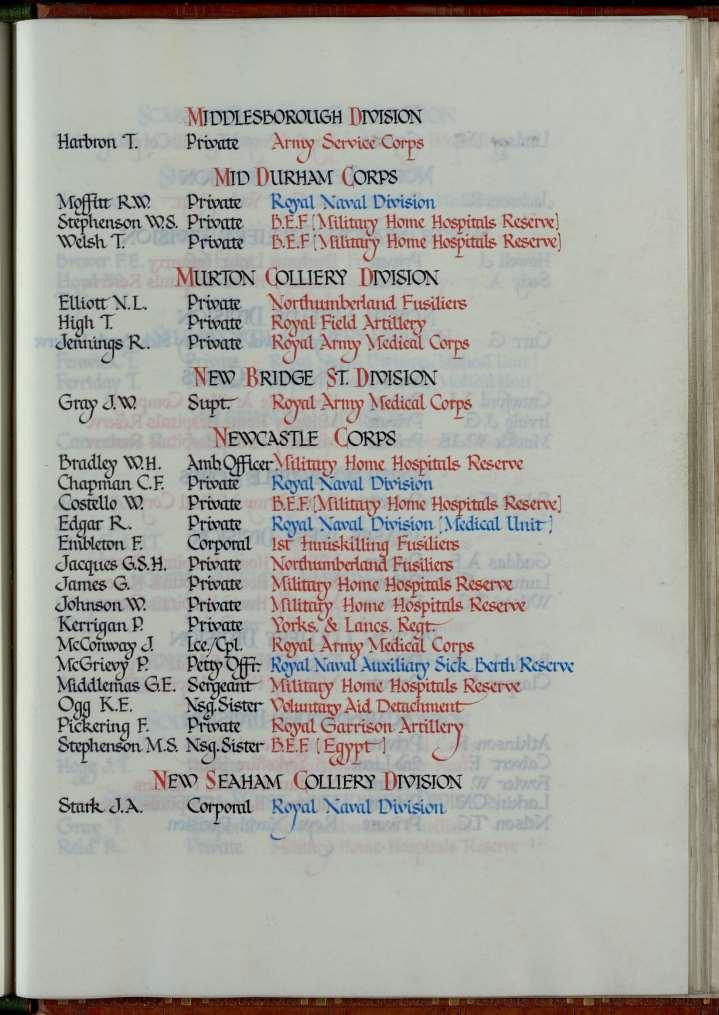 MIDDLESBOROUGH DIVISION
Harbron T. Private Army Service Corps
MID DURHAM CORPS
Moffitt R.W. Private Royal Naval Division
Stephenson W.S. Private B.E.F. [Military Home Hospitals Reserve]
Welsh T. Private B.E.F. [Military Home Hospitals Reserve]
MURTON COLLIERY DIVISION
Elliott N.L. Private Northumberland Fusiliers
High T. Private Royal Field Artillery
Jennings R. Private Royal Army Medical Corps
NEW BRIDGE ST. DIVISION
Gray J.W. Supt. Royal Army Medical Corps
NEWCASTLE CORPS
Bradley W.H. Amb.Officer Military Home Hospitals Reserve
Chapman C.F. Private Royal Naval Division
Costello W. Private B.E.F. [Military Home Hospitals Reserve]
Edgar R. Private Royal Naval Division [Medical Unit]
Embleton F. Corporal 1st Inniskilling Fusiliers
Jacques G.S.H. Private Northumberland Fusiliers
James G. Private Military Home Hospitals Reserve
Johnson W. Private Military Home Hospitals Reserve
Kerrigan P. Private Yorks. & Lancs. Regt.
McConway J. Lce/Cpl. Royal Army Medical Corps
McGrievy P. Petty Offr. Royal Naval Auxiliary Sick Berth Reserve
Middlemas G.E. Sergeant Military Home Hospitals Reserve
Ogg K.E. Nsg. Sister Voluntary Aid Detachment
Pickering F. Private Royal Garrison Artillery
Stephenson M.S. Nsg. Sister B.E.F. [Egypt]
NEW SEAHAM COLLIERY DIVISION
Stark J.A. Corporal Royal Naval Division